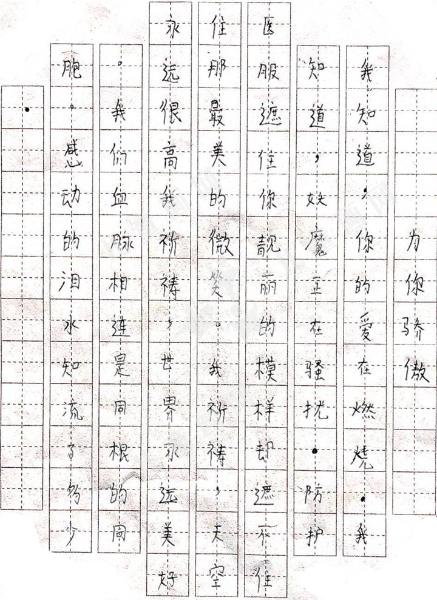 为你骄傲
我知道，你的爱在燃烧。我
知道，妖魔正在骚扰。防护
医服遮住你靓丽的模样却遮不住
住那最美的微笑。我祈祷，天空
永远很高我祈祷，世界永远美好
。我们血脉相连是同根的同
胞。感动的泪水知流了多少
。